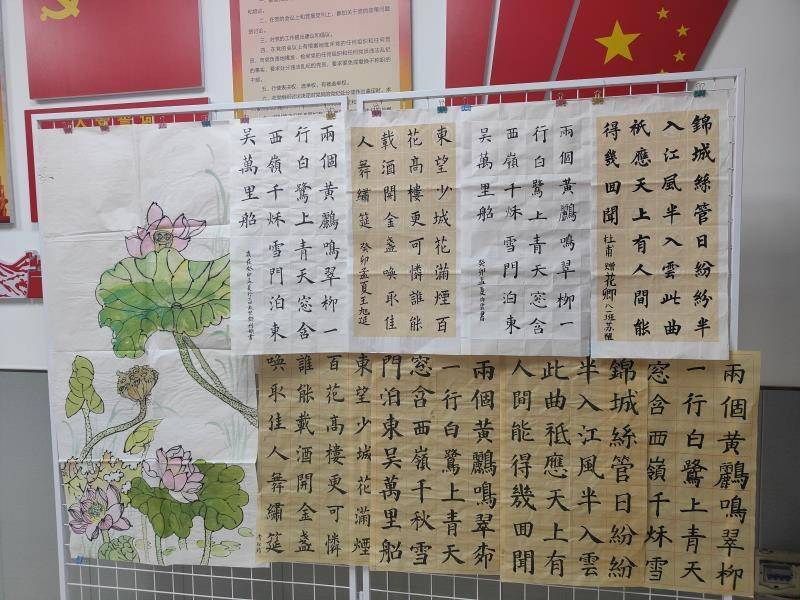 二、在党的会议上和党报党刊上，参加关于党的政策问题
的讨论。
三、对党的工作提出建议和倡议。
四、在党的会议上有根据地批评党的任何组织和任何党
员，向党负责地揭发、检举党的任何组织和任何党员违法乱纪
的事实，要求处分违法乱纪的党员，要求罢免或撤换不称职的
干部。
五、行使表决权、选举权，有被选举权。
錦城絲管日紛紛半
入江風半入雲此曲
祇應天上有人間能
得幾回聞
杜甫 贈花卿 八一班苏
兩個黃鸝鳴翠柳一
行白鷺上青天窓含
西嶺千秌雪門泊東
吴萬里船
癸卯孟夏
東望少城花滿煙百
花高樓更可憐誰能
載酒開金盞喚取佳
人舞繡筵 癸卯孟夏王旭延
兩個黃鸝鳴翠柳一
行白鷺上青天窓含
西嶺千秌雪門泊東
吴萬里船
兩個黃鸝鳴翠柳
一行白鷺上青天
窓含西嶺千秌雪
錦城絲管日紛紛
半入江風半入雲
此曲祇應天上有
人間能得幾回聞
兩個黃鸝鳴翠柳
一行白鷺上青天
窓含西嶺千秋雪
門泊東吴萬里船
東望少城花滿煙
百花高樓更可憐
誰能載酒開金盞
喚取佳人舞繡筵